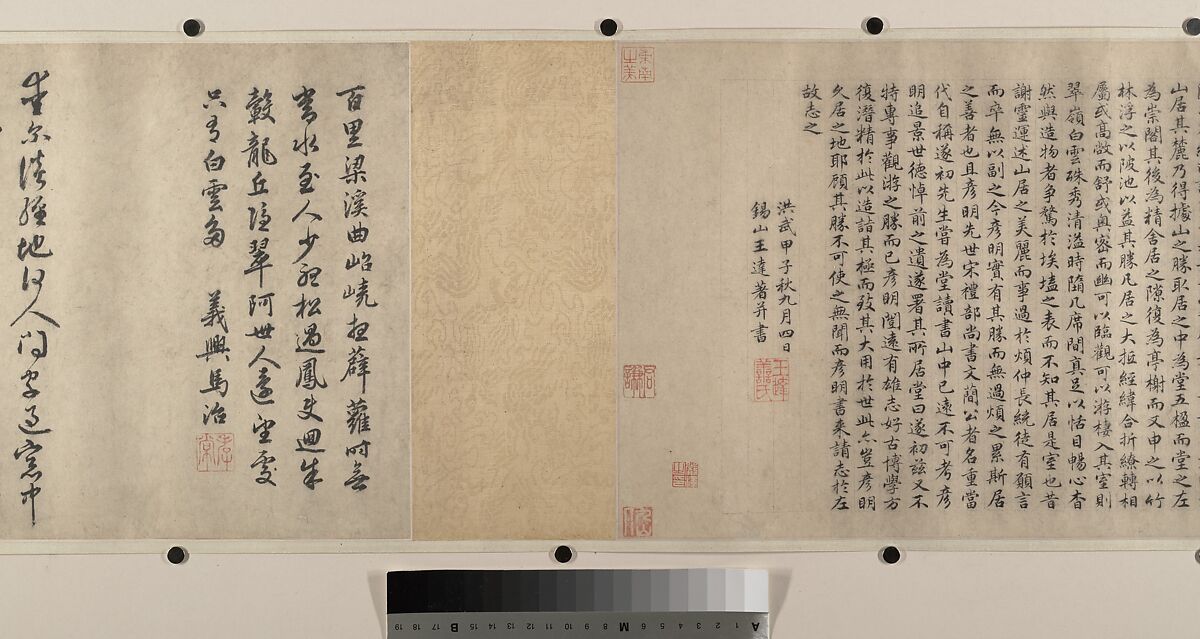 山居其麓乃得據山之勝取居之中為堂五楹而堂之左
為崇閣其後為精舍居之隙復為亭榭而又申之以竹
林浮之以陂池以益其勝凡居之大拒經緯合折繚轉相
屬或高敞而舒或奧密而幽可以臨觀可以游棲入其室則
翠嶺白雲殊秀清溢時隨几席間真足以怡目暢心杳
然與造物者爭騖於埃壒之表而不知其居是室也昔
謝靈運述山居之美麗而事過於煩仲長統徒有願言
而卒無以副之今彥明實有其勝而無過煩之累斯居
之善者也且彥明先世宋禮部尚書文簡公者名重當
代自稱遂初先生嘗為堂讀書山中已遠不可考彥
明追景世德悼前之遺遂署其所居堂曰遂初茲又不
特專事觀游之勝而已彥明閎遠有雄志好古博學方
復潛精於此以造詣其極而致其大用於世此亦豈彥明
久居之地耶顧其勝不可使之無聞而彥明書來請志於左
故志之
洪武甲子秋九月四日
錫山王達著并書
百里梁溪曲岧嶤在薜蘿時無
書水至人少聽松過鳳吏迴朱
轂龍丘隱翠阿世人遠望處
只有白雲多 義興馬治
地何人間
B M A
19 18 17 16 15 14 13 12 11 10 9 8 7 6 5 4 3 2 1